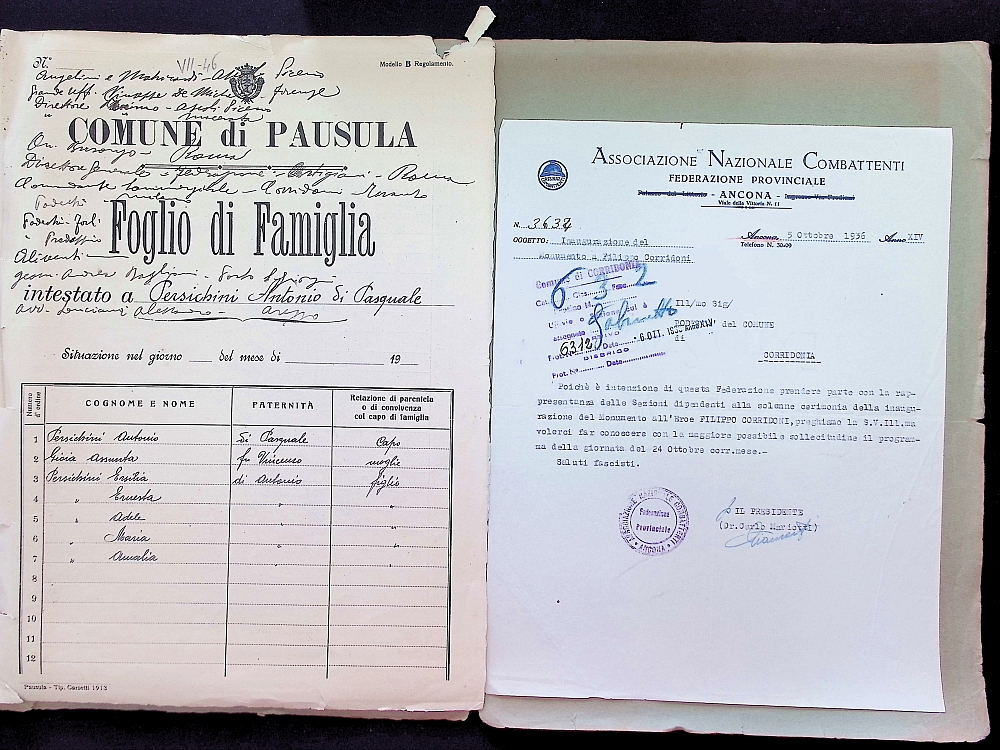 N.
VII-46
Modello B Regolamento.
Angelini e Piceno
Grande Uff. Giuseppe De Firenze
Direttore - Ascoli Piceno
Macerata
COMUNE di PAUSULA
On. Roma
Direttore Generale Federazione Artigiani - Roma
Comandante - Corridoni
Podestà
Foglio di Famiglia
Podestà - Forlì
" Predappio
Alimenti
geom. Andrea
intestato a Persichini Antonio di Pasquale
Avv. Alessandro - Arezzo
Situazione nel giorno ___ del mese di ___ 19
Numero d'ordine COGNOME E NOME PATERNITÀ Relazione di parentela o di convivenza col capo di famiglia
1 Persichini Antonio di Pasquale Capo
2 Gioia Assunta fu Vincenzo moglie
3 Persichini Ersilia di Antonio figlio
4 " Ernesta " "
5 " Adele " "
6 " Maria " "
7 " Amalia " "
8
9
10
11
12
Pausula - Tip. Corsetti 1913
ASSOCIAZIONE NAZIONALE COMBATTENTI
FEDERAZIONE PROVINCIALE
Palazzo del Littorio - ANCONA - Ingresso Via Frediani
Viale della Vittoria N. 11
N. 3634
Ancona, 5 Ottobre 1936 Anno XIV
Telefono N. 30-09
OGGETTO: Inaugurazione del
monumento a Filippo Corridoni
Comune di CORRIDONIA
Cat. 6 Clas. 3 Fasc. 2
Ill/mo Sig/
Gabinetto
PODESTA' del COMUNE
di
6312 Data 6 OTT. 1936 Anno XIV
DISBRIGO
Prot. N. Data
CORRIDONIA
Poichè è intenzione di questa Federazione prendere parte con la rap-
presentanza delle Sezioni dipendenti alla solenne cerimonia della inaugu-
razione del Monumento all'Eroe FILIPPO CORRIDONI,preghiamo la S.V.Ill.ma
volerci far conoscere con la maggiore possibile sollecitudine il program-
ma della giornata del 24 Ottobre corr.mese.-
Saluti fascisti.
IL PRESIDENTE
(Dr.Carlo
ASSOCIAZIONE NAZIONALE COMBATTENTI
Federazione
Provinciale
ANCONA